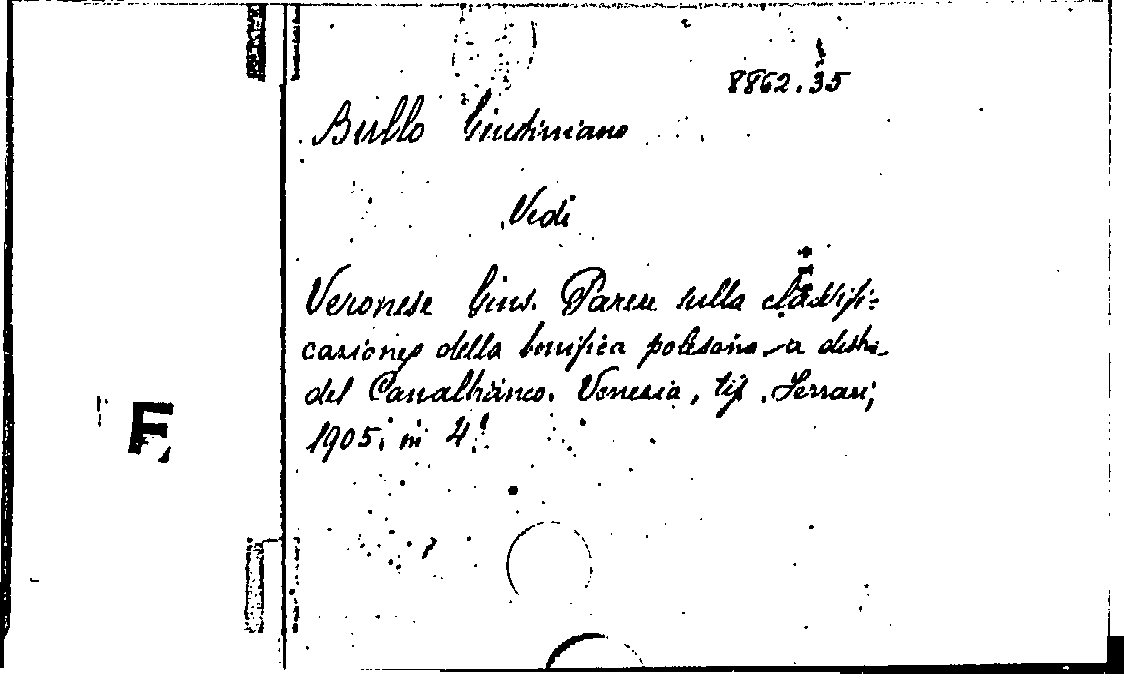 8862.35
Bullo Giustiniano
Vedi
Veronese Gius. Parere sulla classifi=
cazione della bonifica polesana a destra
del Canalbianco. Venezia, tip. Ferrari,
1905. in 4°
F